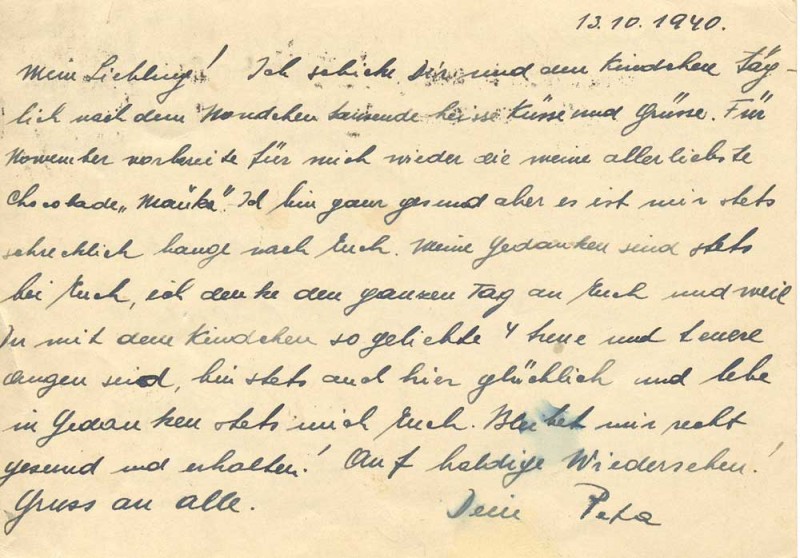 13.10.1940.
Mein Liebling! Ich schicke Dir und dem Kindchen täg-
lich nach dem tausende heisse Küsse und Grüsse. Für
November vorbreite für mich wieder die meine allerliebste
Chocolade „ Ich bin ganz gesund aber es ist mir stets
schrecklich bange nach Euch. Meine Gedanken sind stets
bei Euch, ich denke den ganzen Tag an Euch und weil
Du mit dem Kindchen so geliebte 4 treue und teuere
Augen seid, bin stets auch hier glücklich und lebe
in Gedanken stets mich Euch. Bleibet mir recht
gesund und erhalten! Auf baldige Wiedersehen!
Gruss an alle. Dein Peta